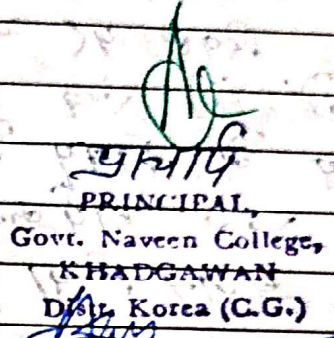 प्राचार्य
PRINCIPAL,
Govt. Naveen College,
KHADGAWAN
Distt. Korea (C.G.)